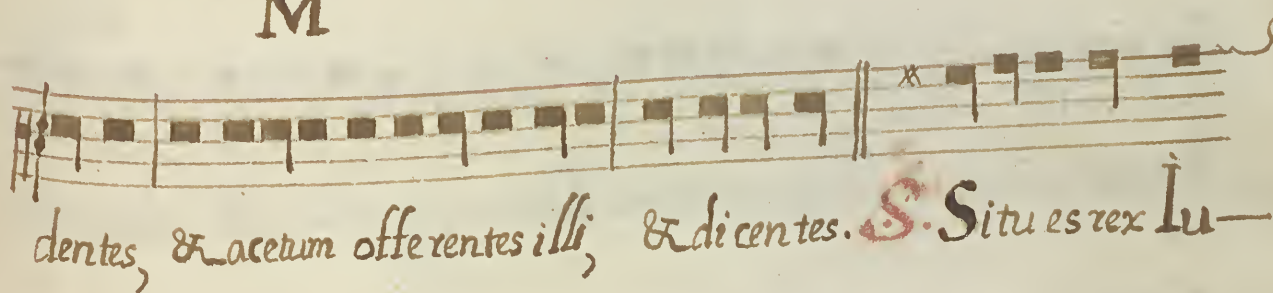 M
dentes, & acetum offerentes illi, & dicentes. S. Si tu es rex Iu-